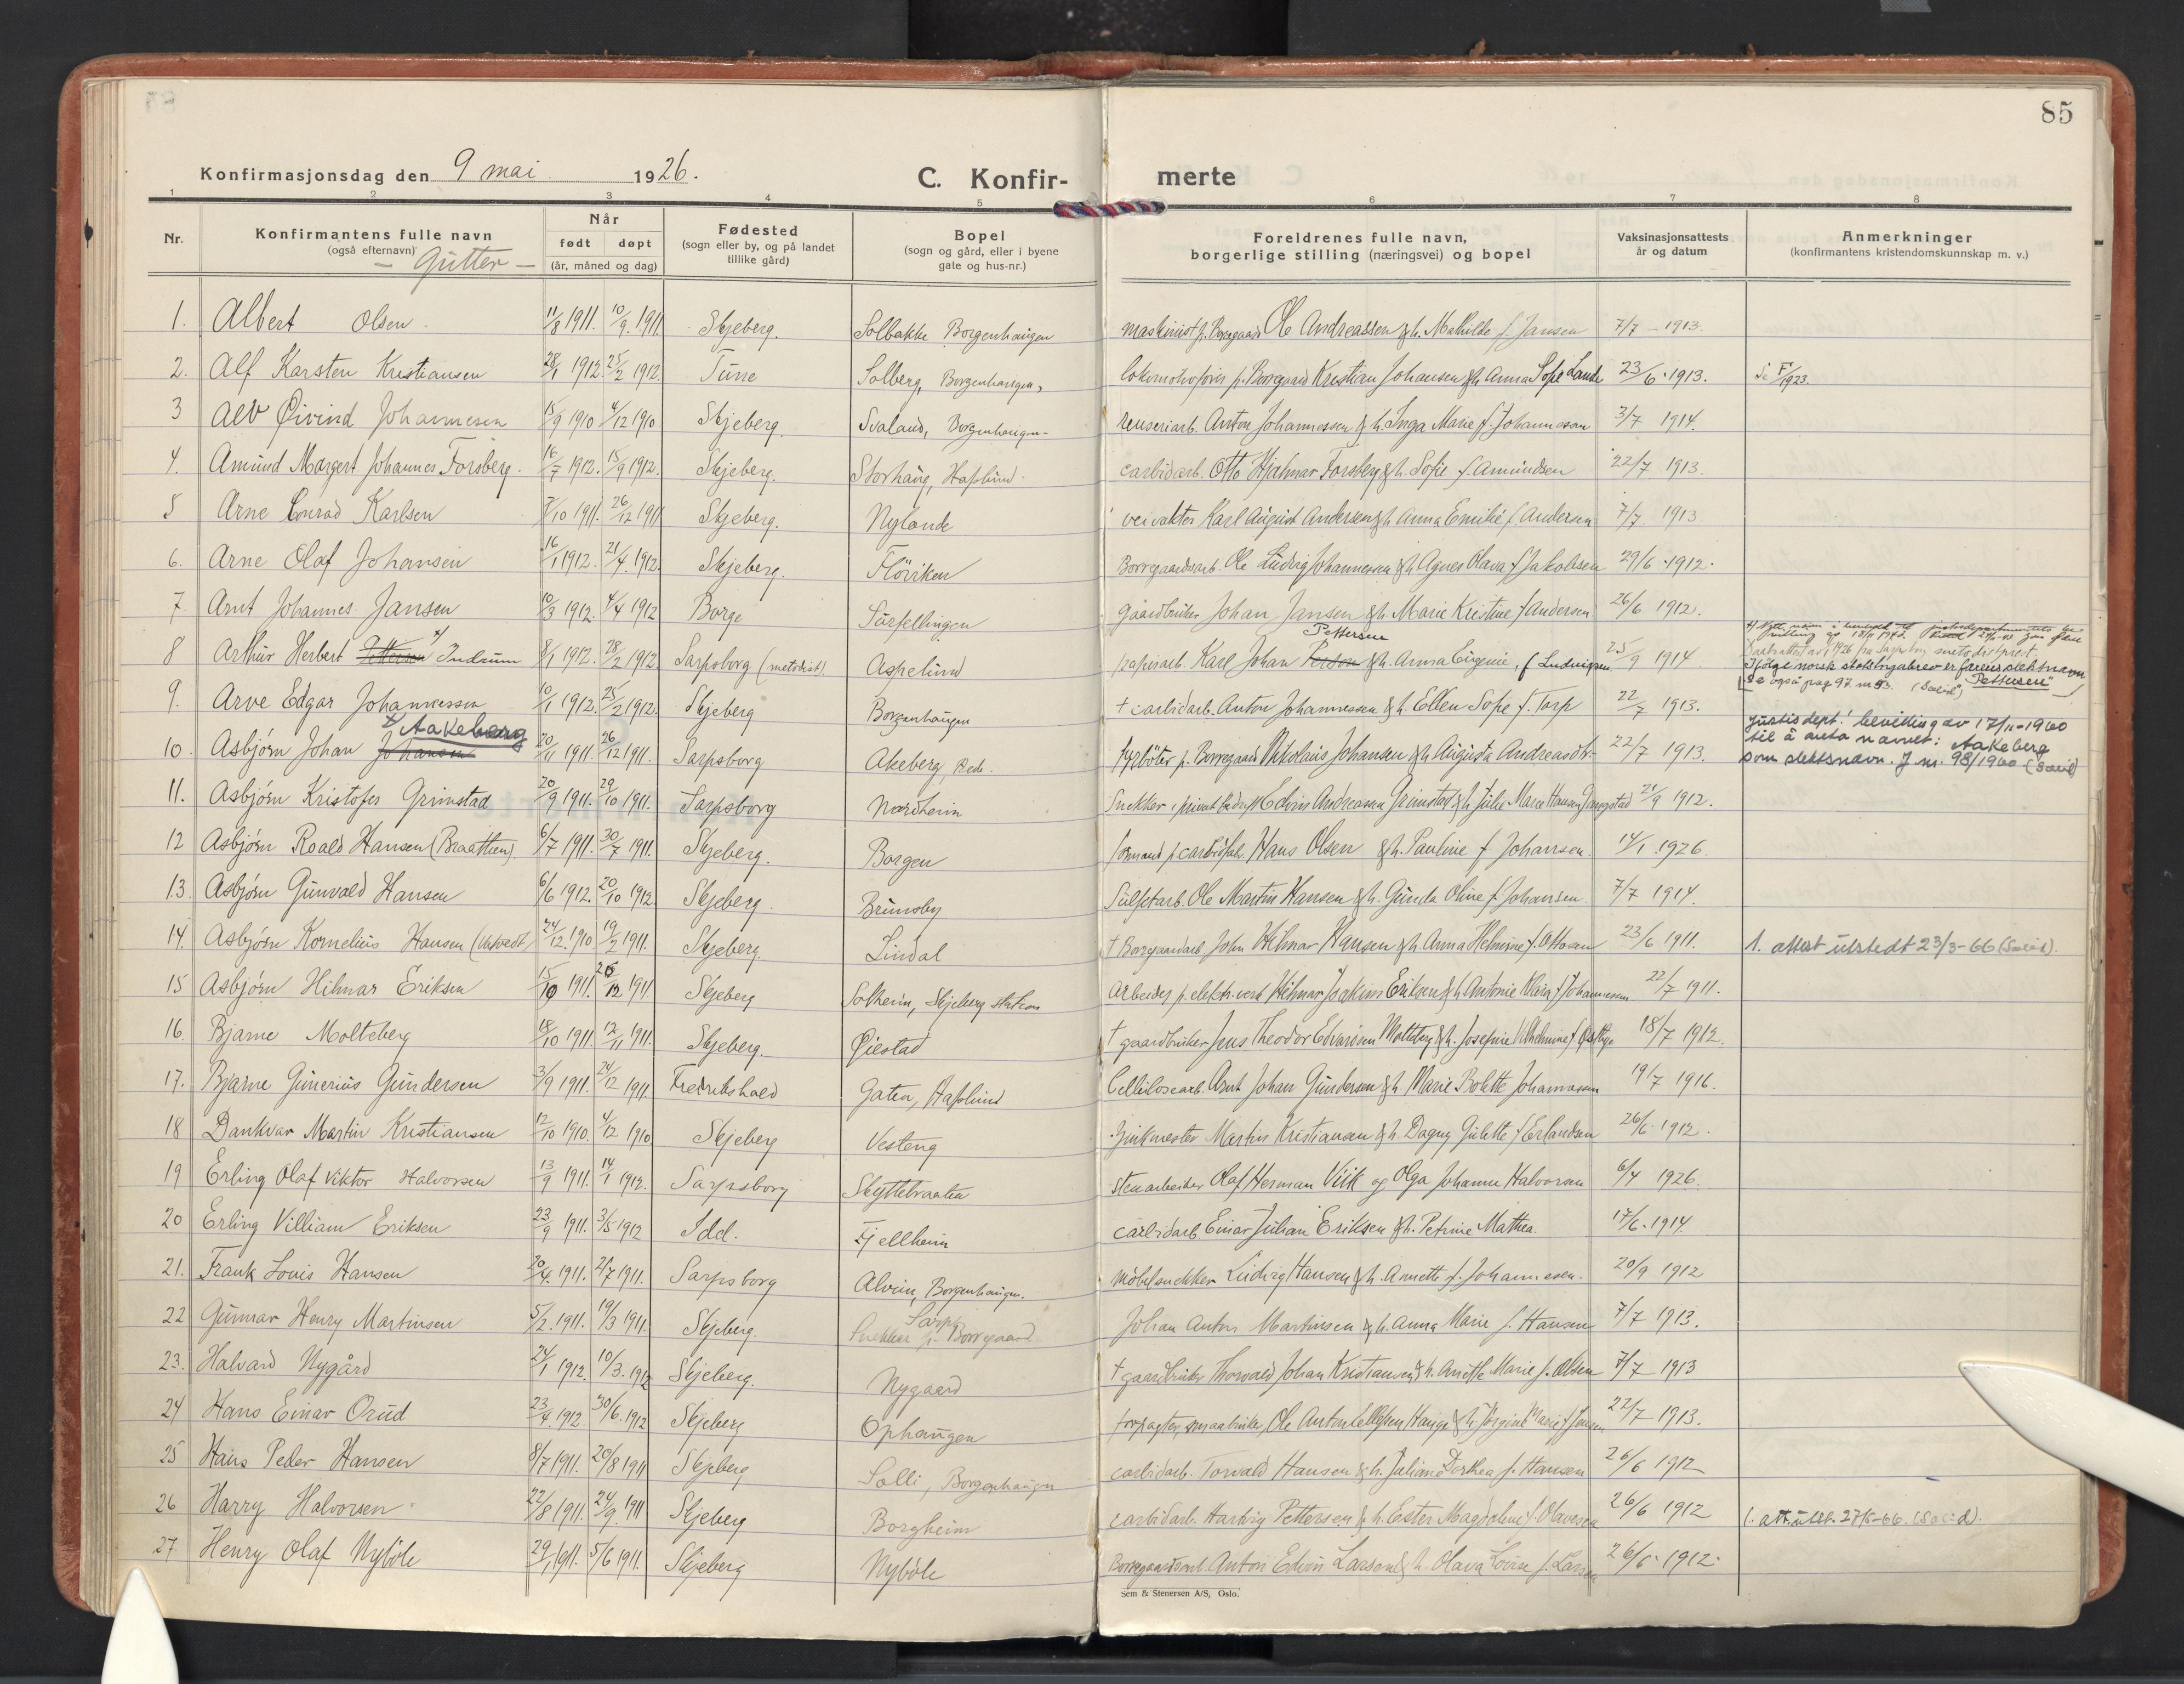 85
Konfirmasjonsdag den 9 mai 1926. C. Konfir- merte
1 2 3 4 5 6 7 8
Nr. Konfirmantens fulle navn (også efternavn) - Gutter - Når født døpt (år, måned og dag) Fødested (sogn eller by, og på landet tillike gård) Bopel (sogn og gård, eller i byene gate og hus-nr.) Foreldrenes fulle navn, borgerlige stilling (næringsvei) og bopel Vaksinasjonsattests år og datum Anmerkninger (konfirmantens kristendomskunnskap m. v.)
1. Albert Olsen. 11/8 1911. 10/9 1911. Skjeberg. Solbakke Borgenhaugen maskinist p. Borregaard Ole Andreassen & h. Mathilde f. Jansen 7/7 - 1913.
2. Alf Karsten Kristiansen 28/1 1912. 25/2 1912. Tune Solberg, Borgenhaugen, Kristian Johansen & h. Anna Sofie Lande 23/6 - 1913. 1923.
3 Alv Øivind Johannesen 15/9 1910 4/12 1910 Skjeberg. Svaland, Borgenhaugen renseriarb. Anton Johannessen & h. Inga Marie f. Johannessen 3/7 1914.
4. Amund Margert Johannes Forsberg. 16/7 1912. 15/9 1912. Skjeberg. Storhaug, Hafslund. carbidarb. Otto Hjalmar Forsberg & h. Sofie f. Amundsen 22/7 1913.
5 Arne Conrad Karlsen 7/10 1911. 26/12 1911 Skjeberg. Nylande veivokter Karl August Andersen & h. Anna Emilie f. Andersen 7/7 1913
6. Arne Olaf Johansen 16/1 1912. 21/4 1912. Skjeberg. Flöviken Borregaardsarb. Ole Ludvig Johannessen & h. Agnes Olava f. Jakobsen 29/6 - 1912.
7. Arnt Johannes Jansen 10/3 1912. 4/4 1912 Borge Torpellingen gaardbruker Johan Jansen & h. Marie Kristine f. Andersen 26/6 1912.
8 Arthur Herbert Pettersen x) Indrum 8/1 1912. 28/2 1912 Sarpsborg (metodist) Aspelund papirarb. Karl Johan Person Pettersen & h. Anna Eugenie, f. Ludvigsen 25/9 1914.
Ifölge norsk statsborgerbrev er farens slektsnavn "Pettersen"
Se også pag 97 nr 53.
9. Arve Edgar Johannessen 10/1 1912. 25/2 1912. Skjeberg Borgenhaugen † carbidarb. Anton Johannessen & h. Ellen Sofie f. Torp 22/7 1913.
10. Asbjörn Johan Johansen x) Aakeberg 20/11 1911. 26/12 1911. Sarpsborg Akeberg, Fyrböter p. Borregaard Nikolaus Johansen & h. Augusta Andreasdtr. 22/7 1913. Justisdept. bevilling av 17/11-1960
til å anta navnet: Aakeberg
som slektsnavn. J nr. 98/1960
11. Asbjörn Kristofer Grimstad 20/9 1911. 29/10 1911. Sarpsborg Nordheim Snekker i privat bedrift Edvin Andreassen Grimstad & h. Julie Marie Hansen 21/9 1912.
12 Asbjörn Roald Hansen (Braathen). 6/7 1911. 30/7 1911. Skjeberg. Borgen formand p. carbidfab. Hans Olsen & h. Pauline f. Johansen. 14/1 1926.
13. Asbjörn Gunvald Hansen 6/6 1912. 20/10 1912 Skjeberg. Brunsby Sulfitarb. Ole Martin Hansen & h. Gunda Oline f. Johansen. 7/7 1914.
14. Asbjörn Kornelius Hansen 24/12. 1910 19/2 1911. Skjeberg. Lindal † Borregaardarb. John Hilmar Hansen & h. Anna Helmine f. Ottosen 23/6 1911. 1. attest utstedt 23/3-66
15 Asbjörn Hilmar Eriksen 15/10 1911. 26/12 1911 Skjeberg Solheim, Skjeberg station Arbeider p. elektr. verk Hilmar Joakim Eriksen & h. Antonie f. Johannessen 22/7 1911.
16. Bjarne Molteberg 18/10 1911. 12/11 1911. Skjeberg. Øiestad † gaardbruker Jens Theodor Edvardsen Molteberg & h. Josefine Wilhelmine f. 18/7 1912.
17. Bjarne Gunerius Gundersen 3/9 1911. 24/12 1911. Fredrikshald Gaten, Hafslund Cellulosearb. Arnt Johan Gundersen & h. Marie Bolette Johannessen 19/7 1916.
18 Dankvar Martin Kristiansen 12/10 1910. 4/12 1910 Skjeberg Vesteng Martin Kristiansen & h. Dagny Gulette f. Erlandsen 26/6 1912.
19 Erling Olaf Viktor Halvorsen 13/9 1911. 14/1 1912. Sarpsborg Skyttebraaten Stenarbeider Olaf Herman Viik og Olga Johanne Halvorsen 6/4 1926.
20 Erling Villiam Eriksen 23/9 1911. 3/5 1912 Idd. Fjellheim carbidarb. Einar Julian Eriksen & h. Petrine Mathea. 17/6. 1914
21. Frank Louis Hansen 20/4. 1911. 2/7 1911. Sarpsborg Alvim, Borgenhaugen. Möbelsnekker Ludvig Hansen & h. Annette f. Johannesen. 20/9 1912
22 Gunnar Henry Martinsen 5/2. 1911. 19/3 1911. Skjeberg. Snekker p. Borregaard Johan Anton Martinsen & h. Anna Marie f. Hansen 7/7 1913.
23. Halvard Nygård 24/1 1912. 10/3. 1912 Skjeberg. Nygaard † gaardbruker Thorvald Johan Kristiansen & h. Anette Marie f. Olsen 7/7 1913
24 Hans Einar Orud 23/4. 1912. 30/6. 1912 Skjeberg Ophaugen forpagter, smaabruker, Ole Anton Ellefsen Hauge & h. Jörgine Marie f. Jensen 22/7 1913.
25 Hans Peder Hansen 8/7 1911. 20/8 1911 Skjeberg Solli, Borgenhaugen carbidarb. Torvald Hansen & h. Juliane Dorthea f. Hansen 26/6 1912
26 Harry Halvorsen 22/8 1911. 24/9. 1911 Skjeberg Borgheim carbidarb. Hartvig Pettersen & h. Ester Magdalene f. Olavesen 26/6 1912 1. att. utst. 27/5-66.
27 Henry Olaf Nyböle 29/1 1911. 5/6 1911. Skjeberg Nyböle Borregaardsarb. Anton Edvin Larsen & h. Olava Lovise f. Larsen 26/6. 1912.
Sem & Stenersen A/S, Oslo.